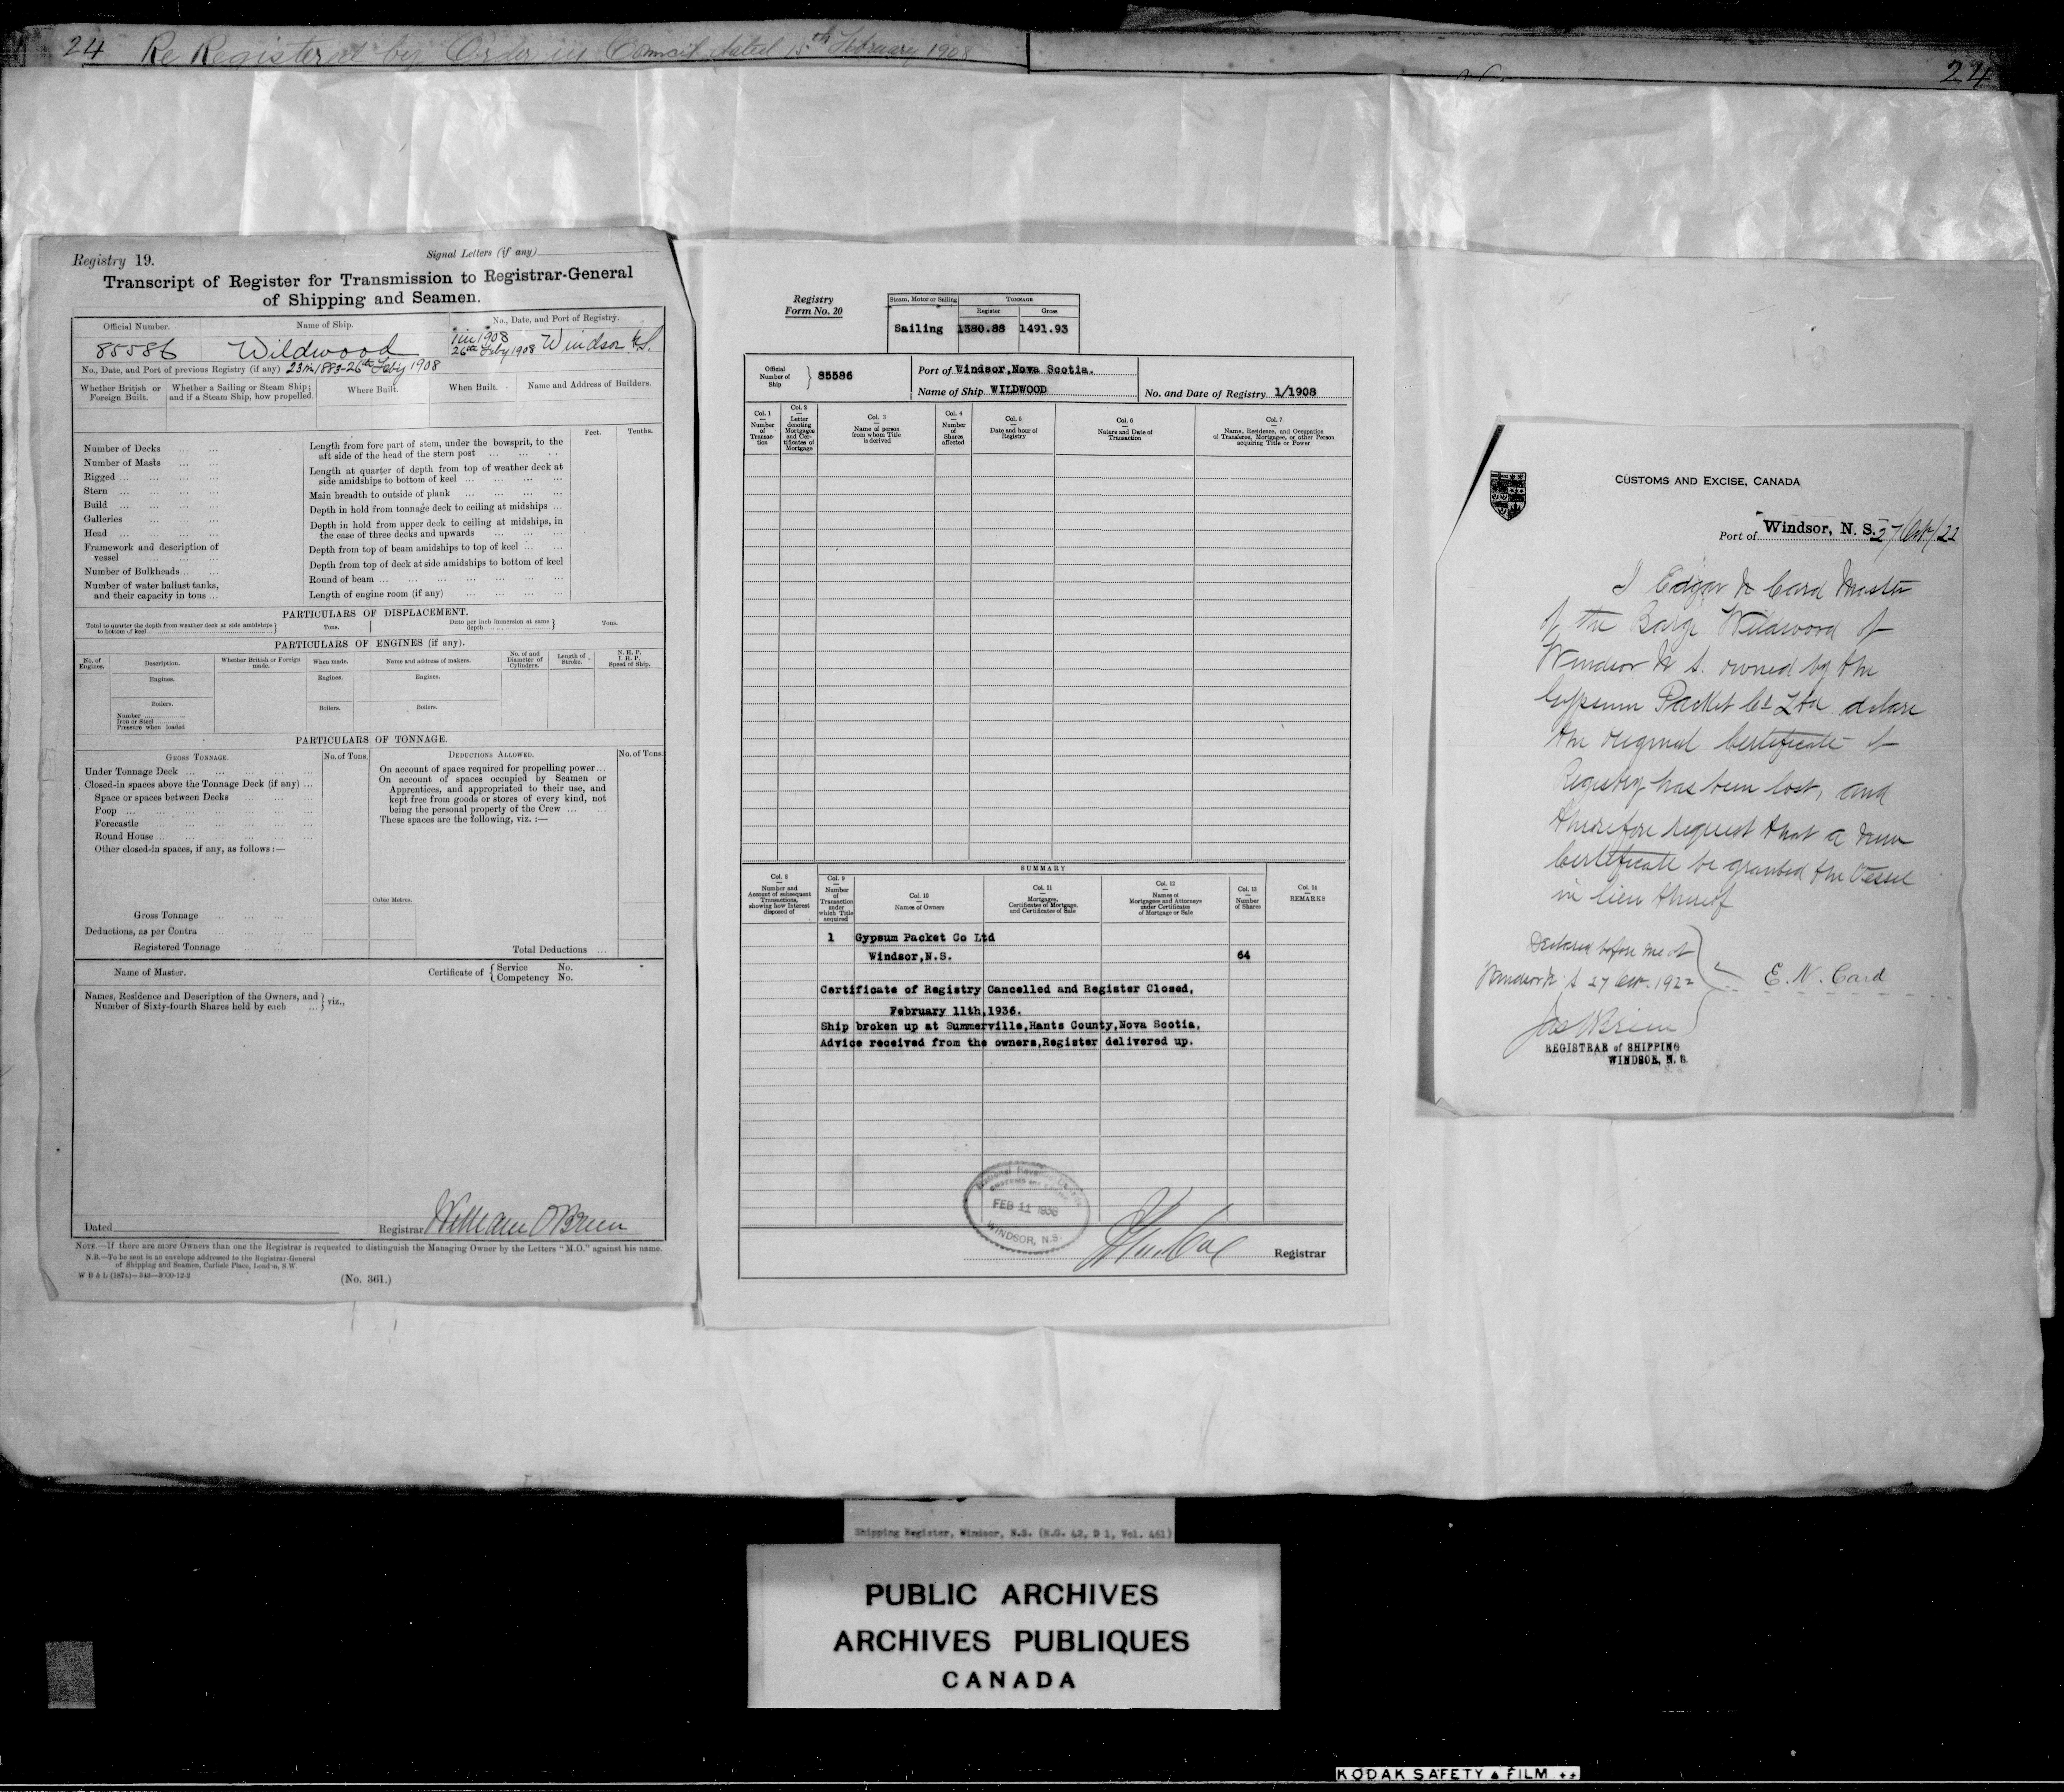 24 Re Registered by Order in Council dated 15th February 1908
24
Registry 19.
Signal Letters (if any)
Transcript of Register for Transmission to Registrar-General
of Shipping and Seamen.
Official Number.
Name of Ship.
No., Date, and Port of Registry.
85586
Wildwood
1 in 1908
26th Feby 1908 Windsor N.S.
No., Date, and Port of previous Registry (if any) 23 in 1883-26th Feby 1908
Whether British or Foreign Built.
Whether a Sailing or Steam Ship; and if a Steam Ship, how propelled.
Where Built.
When Built.
Name and Address of Builders.
Feet.
Tenths.
Number of Decks
Number of Masts
Rigged
Stern
Build
Galleries
Head
Framework and description of
vessel
Number of Bulkheads
Number of water ballast tanks,
and their capacity in tons
Length from fore part of stem, under the bowsprit, to the
aft side of the head of the stern post
Length at quarter of depth from top of weather deck at
side amidships to bottom of keel
Main breadth to outside of plank
Depth in hold from tonnage deck to ceiling at midships
Depth in hold from upper deck to ceiling at midships, in
the case of three decks and upwards
Depth from top of beam amidships to top of keel
Depth from top of deck at side amidships to bottom of keel
Round of beam
Length of engine room (if any)
PARTICULARS OF DISPLACEMENT.
Total to quarter the depth from weather deck at side amidships
to bottom of keel
Tons.
Ditto per inch immersion at same
depth
Tons.
PARTICULARS OF ENGINES (if any).
No. of Engines.
Description.
Whether British or Foreign made.
When made.
Name and address of makers.
No. of and Diameter of Cylinders.
Length of Stroke.
N. H. P.
I. H. P.
Speed of Ship.
Engines.
Engines.
Engines.
Boilers.
Boilers.
Boilers.
Number
Iron or Steel
Pressure when loaded
PARTICULARS OF TONNAGE.
GROSS TONNAGE.
No. of Tons.
DEDUCTIONS ALLOWED.
No. of Tons.
Under Tonnage Deck
Closed-in spaces above the Tonnage Deck (if any)
Space or spaces between Decks
Poop
Forecastle
Round House
Other closed-in spaces, if any, as follows:—
On account of space required for propelling power
On account of spaces occupied by Seamen or
Apprentices, and appropriated to their use, and
kept free from goods or stores of every kind, not
being the personal property of the Crew
These spaces are the following, viz.:—
Cubic Metres.
Gross Tonnage
Deductions, as per Contra
Registered Tonnage
Total Deductions
Name of Master.
Certificate of { Service No.
Competency No.
Names, Residence and Description of the Owners, and
Number of Sixty-fourth Shares held by each } viz.,
Dated
Registrar William O'Brien
NOTE.—If there are more Owners than one the Registrar is requested to distinguish the Managing Owner by the Letters "M.O." against his name.
N.B.—To be sent in an envelope addressed to the Registrar-General
of Shipping and Seamen, Carlisle Place, London, S.W.
(No. 361.)
Registry
Form No. 20
Steam, Motor or Sailing
TONNAGE
Register
Gross
Sailing 1380.88 1491.93
Official Number of Ship } 85586
Port of Windsor, Nova Scotia.
Name of Ship WILDWOOD
No. and Date of Registry 1/1908
Col. 1 Number of Transaction
Col. 2 Letter denoting Mortgages and Certificates of Mortgage
Col. 3 Name of person from whom Title is derived
Col. 4 Number of Shares affected
Col. 5 Date and hour of Registry
Col. 6 Nature and Date of Transaction
Col. 7 Name, Residence, and Occupation of Transferee, Mortgagee, or other Person acquiring Title or Power
SUMMARY
Col. 8 Number and Account of subsequent Transactions, showing how Interest disposed of
Col. 9 Number of Transaction under which Title acquired
Col. 10 Names of Owners
Col. 11 Mortgages, Certificates of Mortgage, and Certificates of Sale
Col. 12 Names of Mortgagees and Attorneys under Certificates of Mortgage or Sale
Col. 13 Number of Shares
Col. 14 REMARKS
1 Gypsum Packet Co Ltd
Windsor, N.S. 64
Certificate of Registry Cancelled and Register Closed,
February 11th, 1936.
Ship broken up at Summerville, Hants County, Nova Scotia.
Advice received from the owners, Register delivered up.
FEB 11 1936
WINDSOR, N.S.
Registrar
CUSTOMS AND EXCISE, CANADA
Port of Windsor, N. S. 27 Oct/22
I Edgar N Card Master
of the Barge Wildwood of
Windsor N S. owned by the
Gypsum Packet Co Ltd declare
the original Certificate of
Registry has been lost, and
therefore request that a new
Certificate be granted the Vessel
in lieu thereof
Declared before me at
Windsor N S 27 Oct. 1922
E. N. Card
Jas O'Brien
REGISTRAR of SHIPPING
WINDSOR, N. S.
Shipping Register, Windsor, N.S. (R.G. 42, D 1, Vol. 461)
PUBLIC ARCHIVES
ARCHIVES PUBLIQUES
CANADA
KODAK SAFETY FILM